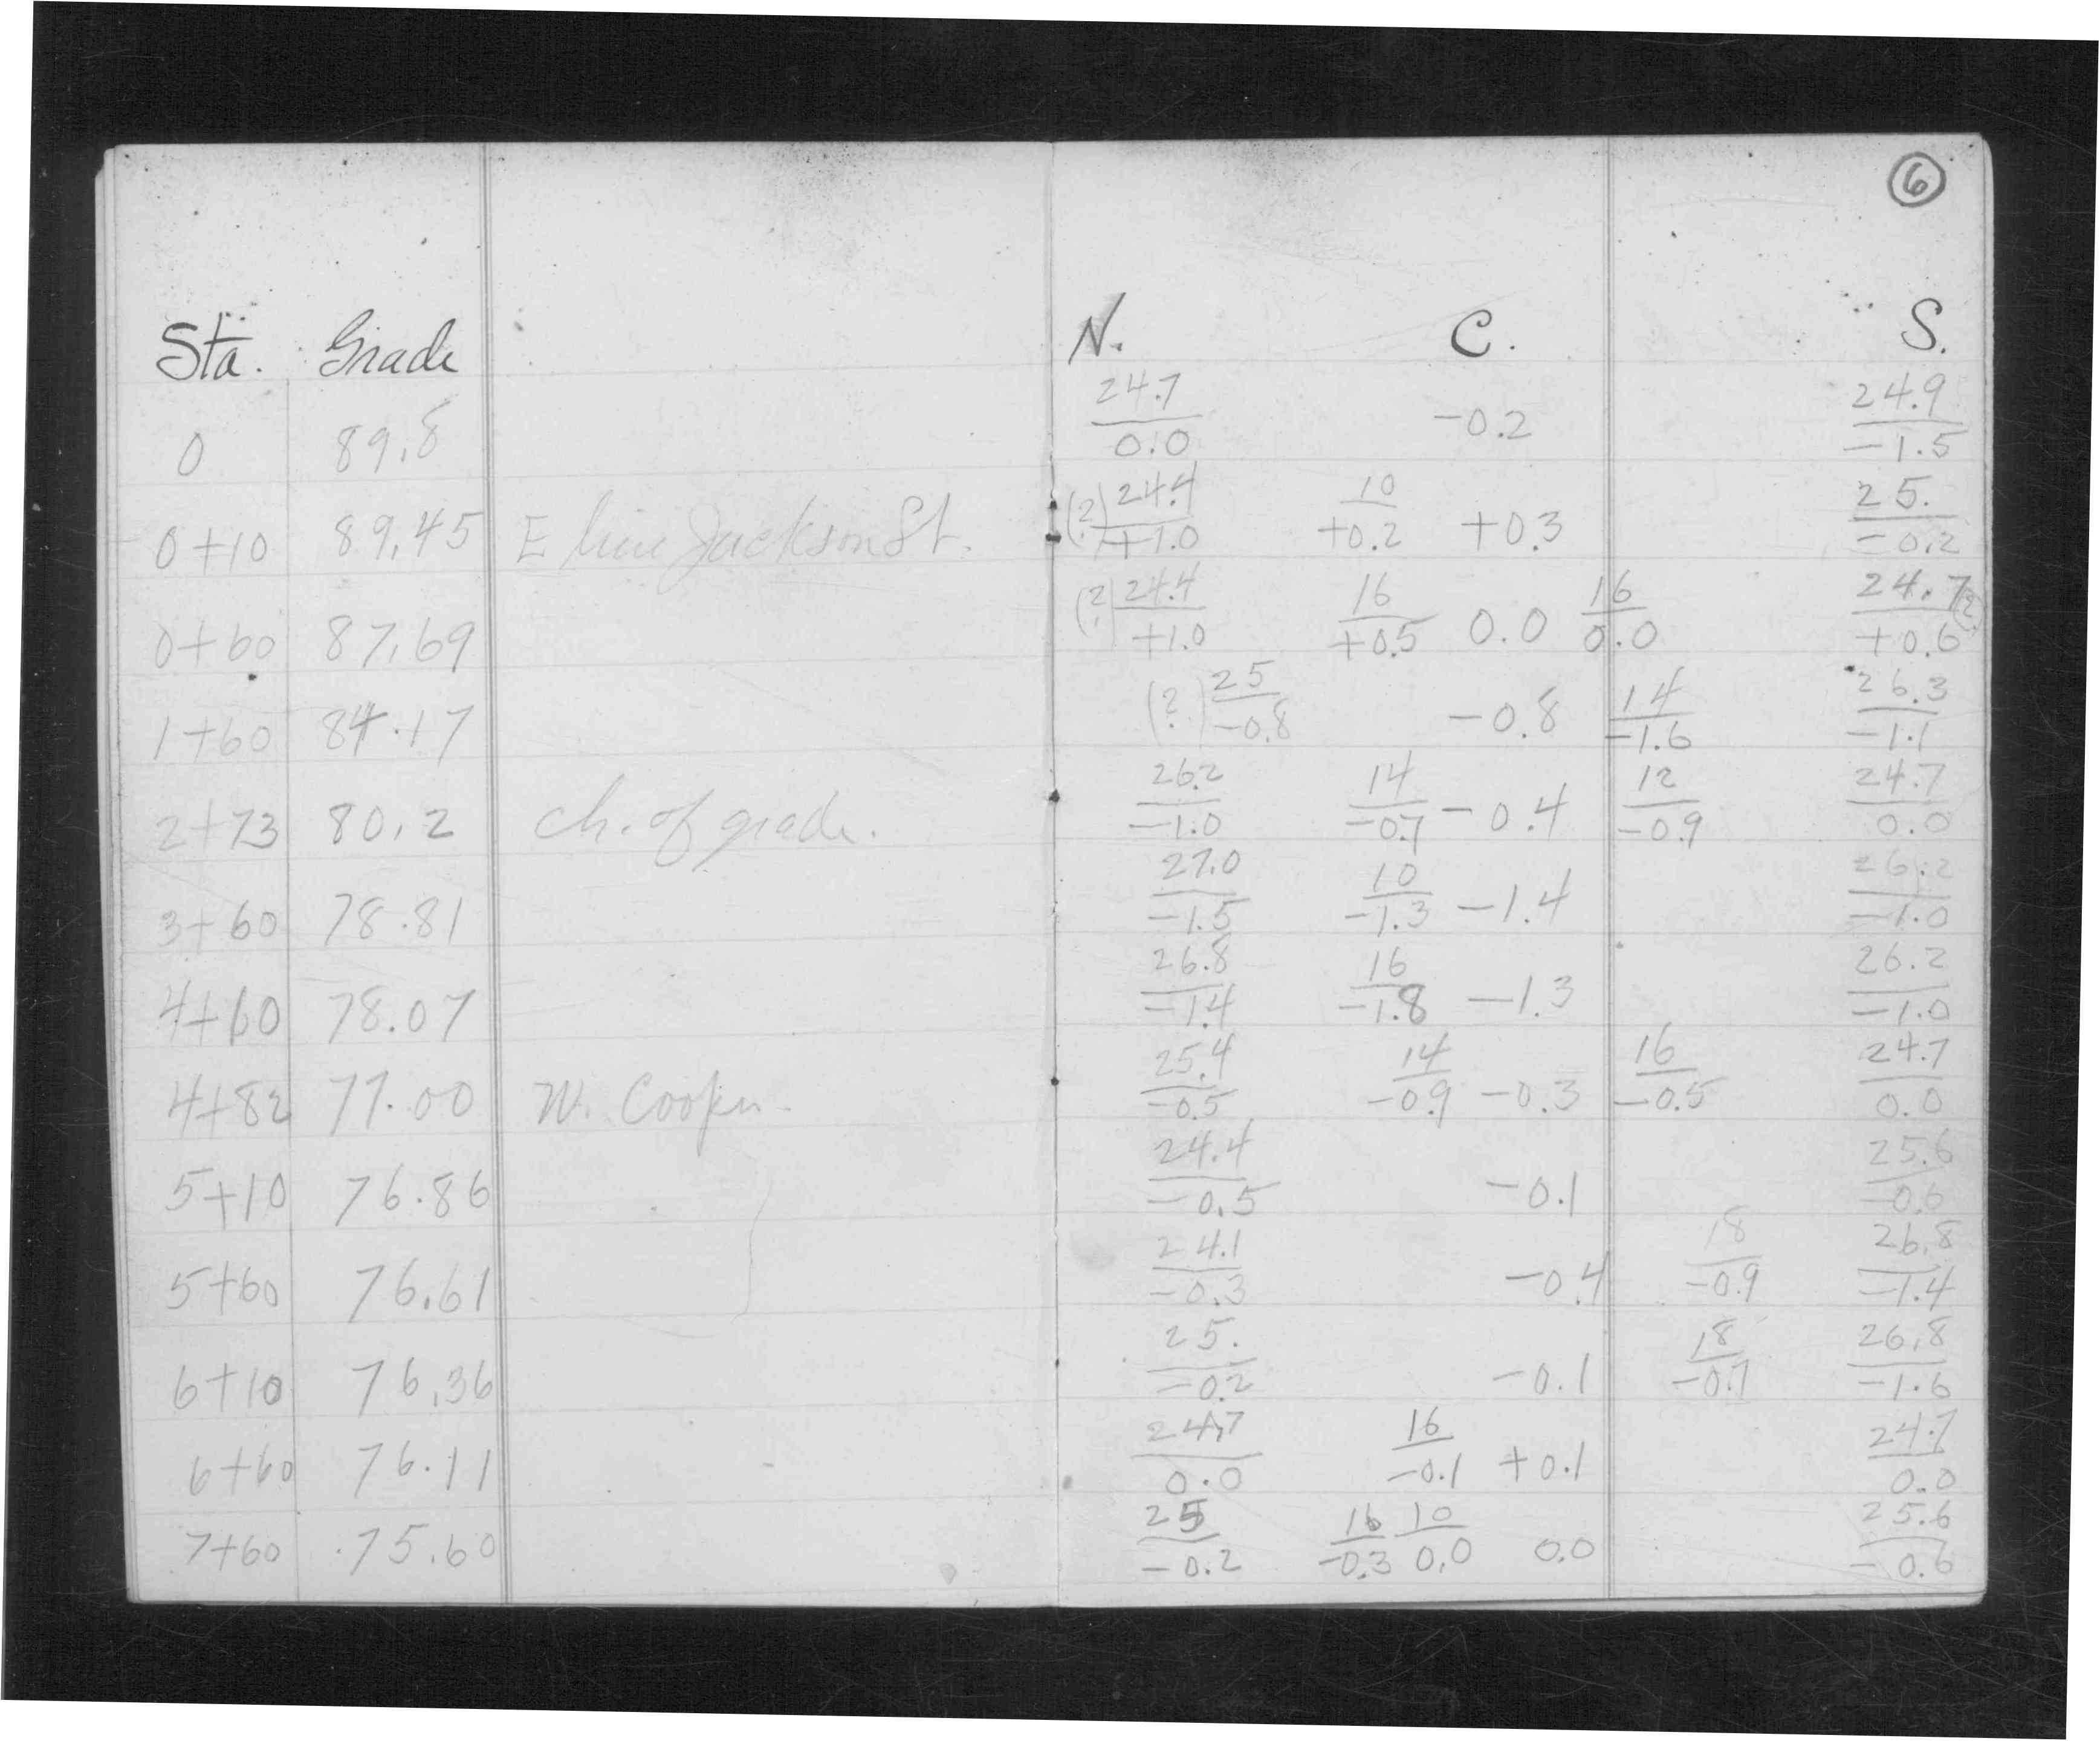 6
Sta. Grade N. C. S.
0 89.8 24.7/0.0 -0.2 24.9/-1.5
0+10 89.45 E line Jackson St. (?) 24.4/+1.0 10/+0.2 +0.3 25./-0.2
0+60 87.69 (?) 24.4/+1.0 16/+0.5 0.0 16/0.0 24.7/+0.6 (?)
1+60 84.17 (?) 25/-0.8 -0.8 14/-1.6 26.3/-1.1
2+73 80.2 Ch. of grade. 26.2/-1.0 14/-0.7 -0.4 12/-0.9 24.7/0.0
3+60 78.81 27.0/-1.5 10/-1.3 -1.4 26.2/-1.0
4+60 78.07 26.8/-1.4 16/-1.8 -1.3 26.2/-1.0
4+82 77.00 W. Cooper 25.4/-0.5 14/-0.9 -0.3 16/-0.5 24.7/0.0
5+10 76.86 24.4/-0.5 -0.1 25.6/-0.6
5+60 76.61 24.1/-0.3 -0.4 18/-0.9 26.8/-1.4
6+10 76.36 25./-0.2 -0.1 18/-0.7 26.8/-1.6
6+60 76.11 24.7/0.0 16/-0.1 +0.1 24.7/0.0
7+60 75.60 25/-0.2 16/-0.3 10/0.0 0.0 25.6/-0.6